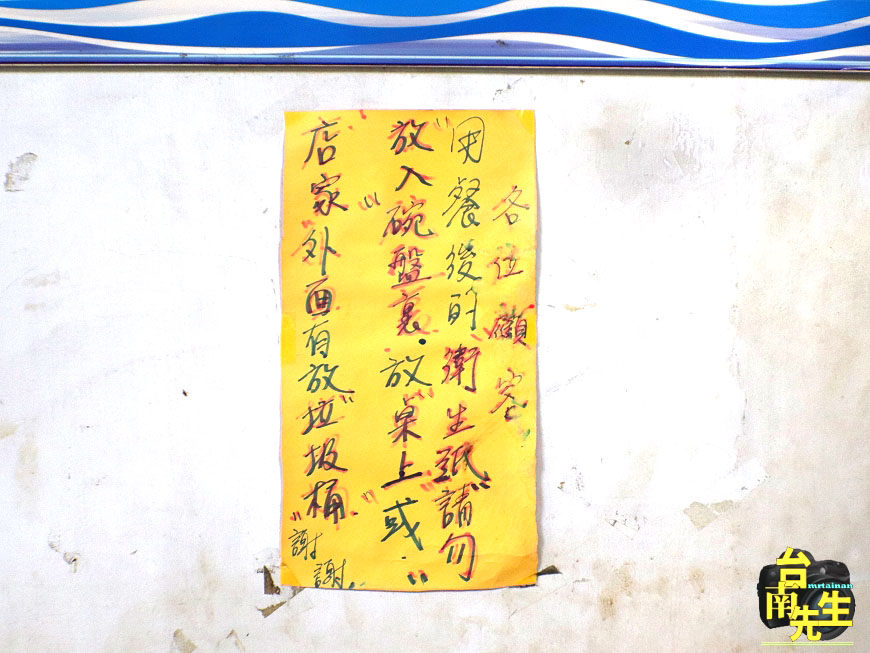 各位顧客
用餐後的衛生紙"請"勿
"放"入碗盤裏.放"桌上"或.
店家"外面有放"垃圾桶."
謝謝..
台南先生
mrtainan